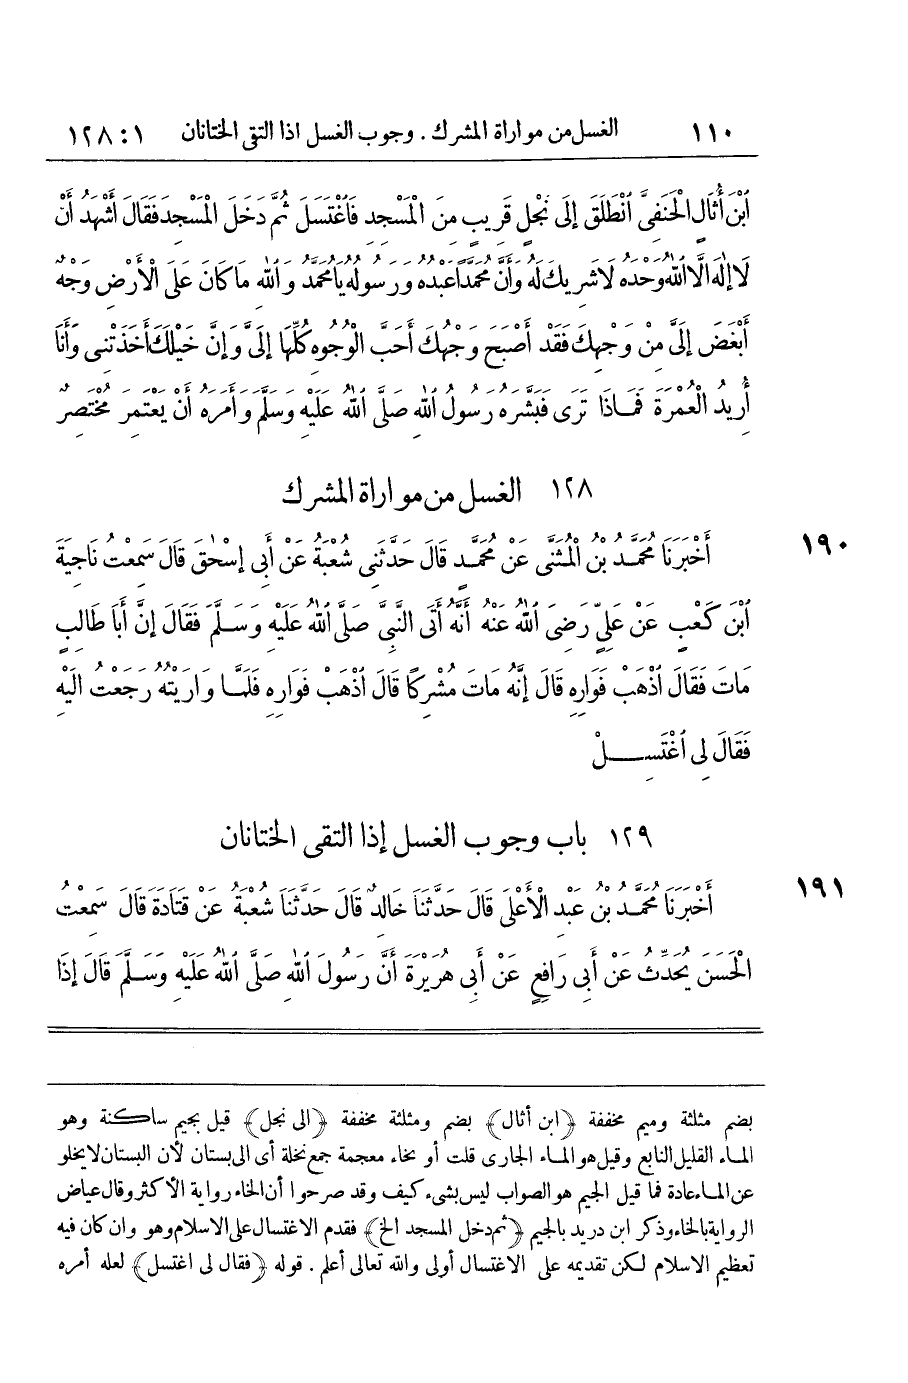 ١١٠ الغسل من مواراة المشرك . وجوب الغسل اذا التقى الختانان ١ : ١٢٨
ٱبْنَ أُثَالٍ الْحَنَفِىَّ ٱنْطَلَقَ إِلَى نَجْلٍ قَرِيبٍ مِنَ الْمَسْجِدِ فَاغْتَسَلَ ثُمَّ دَخَلَ الْمَسْجِدَ فَقَالَ أَشْهَدُ أَنْ
لَا إِلٰهَ إِلَّا اللّٰهُ وَحْدَهُ لَا شَرِيكَ لَهُ وَأَنَّ مُحَمَّدًا عَبْدُهُ وَرَسُولُهُ يَا مُحَمَّدُ وَاللّٰهِ مَا كَانَ عَلَى الْأَرْضِ وَجْهٌ
أَبْغَضَ إِلَىَّ مِنْ وَجْهِكَ فَقَدْ أَصْبَحَ وَجْهُكَ أَحَبَّ الْوُجُوهِ كُلِّهَا إِلَىَّ وَإِنَّ خَيْلَكَ أَخَذَتْنِى وَأَنَا
أُرِيدُ الْعُمْرَةَ فَمَاذَا تَرَى فَبَشَّرَهُ رَسُولُ اللّٰهِ صَلَّى اللّٰهُ عَلَيْهِ وَسَلَّمَ وَأَمَرَهُ أَنْ يَعْتَمِرَ مُخْتَصِرٌ
١٢٨ الغسل من مواراة المشرك
١٩٠ أَخْبَرَنَا مُحَمَّدُ بْنُ الْمُثَنَّى عَنْ مُحَمَّدٍ قَالَ حَدَّثَنِى شُعْبَةُ عَنْ أَبِى إِسْحٰقَ قَالَ سَمِعْتُ نَاجِيَةَ
ٱبْنَ كَعْبٍ عَنْ عَلِىٍّ رَضِىَ اللّٰهُ عَنْهُ أَنَّهُ أَتَى النَّبِىَّ صَلَّى اللّٰهُ عَلَيْهِ وَسَلَّمَ فَقَالَ إِنَّ أَبَا طَالِبٍ
مَاتَ فَقَالَ ٱذْهَبْ فَوَارِهِ قَالَ إِنَّهُ مَاتَ مُشْرِكًا قَالَ ٱذْهَبْ فَوَارِهِ فَلَمَّا وَارَيْتُهُ رَجَعْتُ إِلَيْهِ
فَقَالَ لِى ٱغْتَسِلْ
١٢٩ باب وجوب الغسل إذا التقى الختانان
١٩١ أَخْبَرَنَا مُحَمَّدُ بْنُ عَبْدِ الْأَعْلَى قَالَ حَدَّثَنَا خَالِدٌ قَالَ حَدَّثَنَا شُعْبَةُ عَنْ قَتَادَةَ قَالَ سَمِعْتُ
الْحَسَنَ يُحَدِّثُ عَنْ أَبِى رَافِعٍ عَنْ أَبِى هُرَيْرَةَ أَنَّ رَسُولَ اللّٰهِ صَلَّى اللّٰهُ عَلَيْهِ وَسَلَّمَ قَالَ إِذَا
بضم مثلثة وميم مخففة ﴿ابن أثال﴾ بضم ومثلثة مخففة ﴿الى نجل﴾ قيل بجيم ساكنة وهو
الماء القليل النابع وقيل هو الماء الجارى قلت أو بخاء معجمة جمع نخلة أى الى بستان لأن البستان لا يخلو
عن الماء عادة فما قيل الجيم هو الصواب ليس بشىء كيف وقد صرحوا أن الخاء رواية الأكثر وقال عياض
الرواية بالخاء وذكر ابن دريد بالجيم ﴿ثم دخل المسجد الخ﴾ فقدم الاغتسال على الاسلام وهو وان كان فيه
تعظيم الاسلام لكن تقديمه على الاغتسال أولى والله تعالى أعلم . قوله ﴿فقال لى اغتسل﴾ لعله أمره